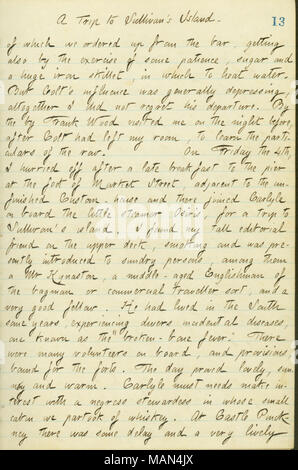 A Trip to Sullivan's Island.
13
of which we ordered up from the bar, getting
also by the exercise of some patience, sugar and
a huge iron skillet, in which to heat water.
Our Colt's influence was generally depressing
altogether I did not regret his departure. By
the by Frank Wood visited me on the night before,
after Colt had left my room, to learn the parti-
culars of the row. On Friday the 4th,
I hurried off after a late breakfast to the pier
at the foot of Market Street, adjacent to the un-
finished Custom house and there joined Carlyle
on board the little steamer Osiris, for a trip to
Sullivan's island. I found my tall editorial
friend on the upper deck, smoking and was pre-
sently introduced to sundry persons, among them
a Mr Kynaston, a middle-aged Englishman of
the bagman or commercial traveller sort, and a
very good fellow. He had lived in the South
some years, experiencing divers incidental diseases,
one known as the "broken-bone fever." There
were many volunteers on board, and provisions
bound for the forts. The day proved lovely, sun-
ny and warm. Carlyle must needs make in-
terest with a negress stewardess in whose small
cabin we partook of whiskey. At Castle Pinck-
ney there was some delay and a very lively
alamy
www.alamy.com
MAN4JX